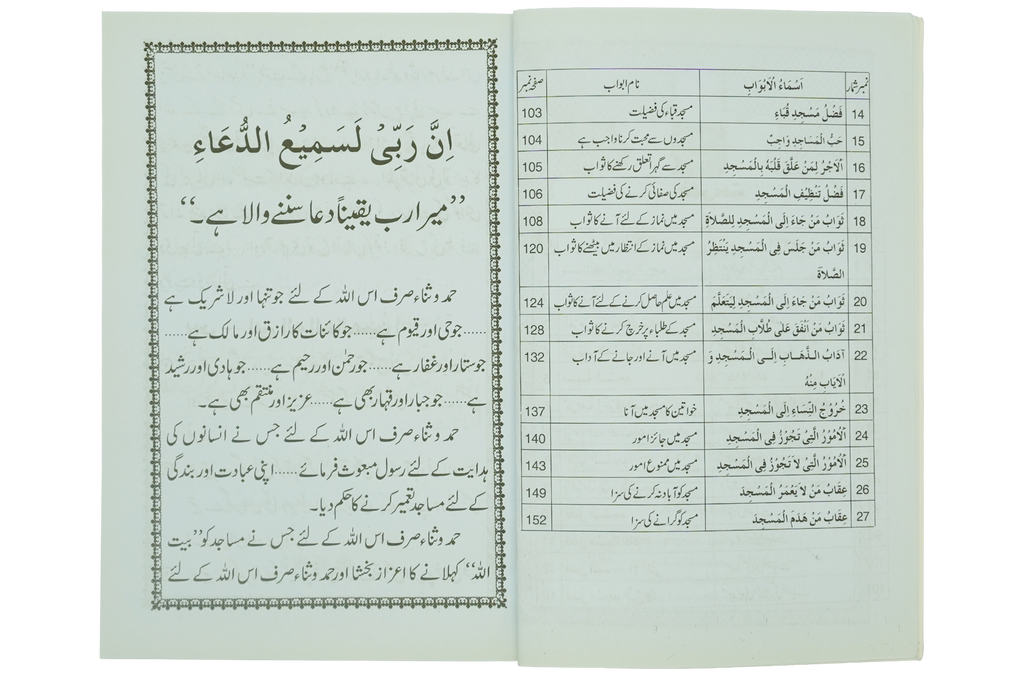 نمبر شمار اَسْمَاءُ الْاَبْوَابِ نام ابواب صفحہ نمبر
14 فَضْلُ مَسْجِدِ قُبَاءِ مسجد قباء کی فضیلت 103
15 حَبُّ الْمَسَاجِدِ وَاجِبٌ مسجدوں سے محبت کرنا واجب ہے 104
16 اَلْاَجْرُ لِمَنْ عَلَّقَ قَلْبَهُ بِالْمَسْجِدِ مسجد سے گہرا تعلق رکھنے کا ثواب 105
17 فَضْلُ تَنْظِيْفِ الْمَسْجِدِ مسجد کی صفائی کرنے کی فضیلت 106
18 ثَوَابُ مَنْ جَاءَ اِلَى الْمَسْجِدِ لِلصَّلَاةِ مسجد میں نماز کے لئے آنے کا ثواب 108
19 ثَوَابُ مَنْ جَلَسَ فِى الْمَسْجِدِ يَنْتَظِرُ مسجد میں نماز کے انتظار میں بیٹھنے کا ثواب 120
الصَّلَاةَ
20 ثَوَابُ مَنْ جَاءَ اِلَى الْمَسْجِدِ لِيَتَعَلَّمَ مسجد میں علم حاصل کرنے کے لئے آنے کا ثواب 124
21 ثَوَابُ مَنْ اَنْفَقَ عَلٰى طُلَّابِ الْمَسْجِدِ مسجد کے طلباء پر خرچ کرنے کا ثواب 128
22 آدَابُ الذَّهَابِ اِلَى الْمَسْجِدِ وَ مسجد میں آنے اور جانے کے آداب 132
الْاِيَابِ مِنْهُ
23 خُرُوْجُ النِّسَاءِ اِلَى الْمَسْجِدِ خواتین کا مسجد میں آنا 137
24 اَلْاُمُوْرُ الَّتِىْ تَجُوْزُ فِى الْمَسْجِدِ مسجد میں جائز امور 140
25 اَلْاُمُوْرُ الَّتِىْ لَا تَجُوْزُ فِى الْمَسْجِدِ مسجد میں ممنوع امور 143
26 عِقَابُ مَنْ لَا يَعْمَرُ الْمَسْجِدَ مسجد کو آباد نہ کرنے کی سزا 149
27 عِقَابُ مَنْ هَدَمَ الْمَسْجِدَ مسجد کو گرانے کی سزا 152
اِنَّ رَبِّىْ لَسَمِيْعُ الدُّعَاءِ
”میرا رب یقیناً دعا سننے والا ہے۔“
حمد و ثناء صرف اس اللہ کے لئے جو تنہا اور لا شریک ہے
......جو حی اور قیوم ہے......جو کائنات کا رازق اور مالک ہے......
جو ستار اور غفار ہے......جو رحمٰن اور رحیم ہے......جو ہادی اور رشید
ہے......جو جبار اور قہار بھی ہے......عزیز اور منتقم بھی ہے۔
حمد و ثناء صرف اس اللہ کے لئے جس نے انسانوں کی
ہدایت کے لئے رسول مبعوث فرمائے......اپنی عبادت اور بندگی
کے لئے مساجد تعمیر کرنے کا حکم دیا۔
حمد و ثناء صرف اس اللہ کے لئے جس نے مساجد کو ”بیت
اللہ“ کہلانے کا اعزاز بخشا اور حمد و ثناء صرف اس اللہ کے لئے